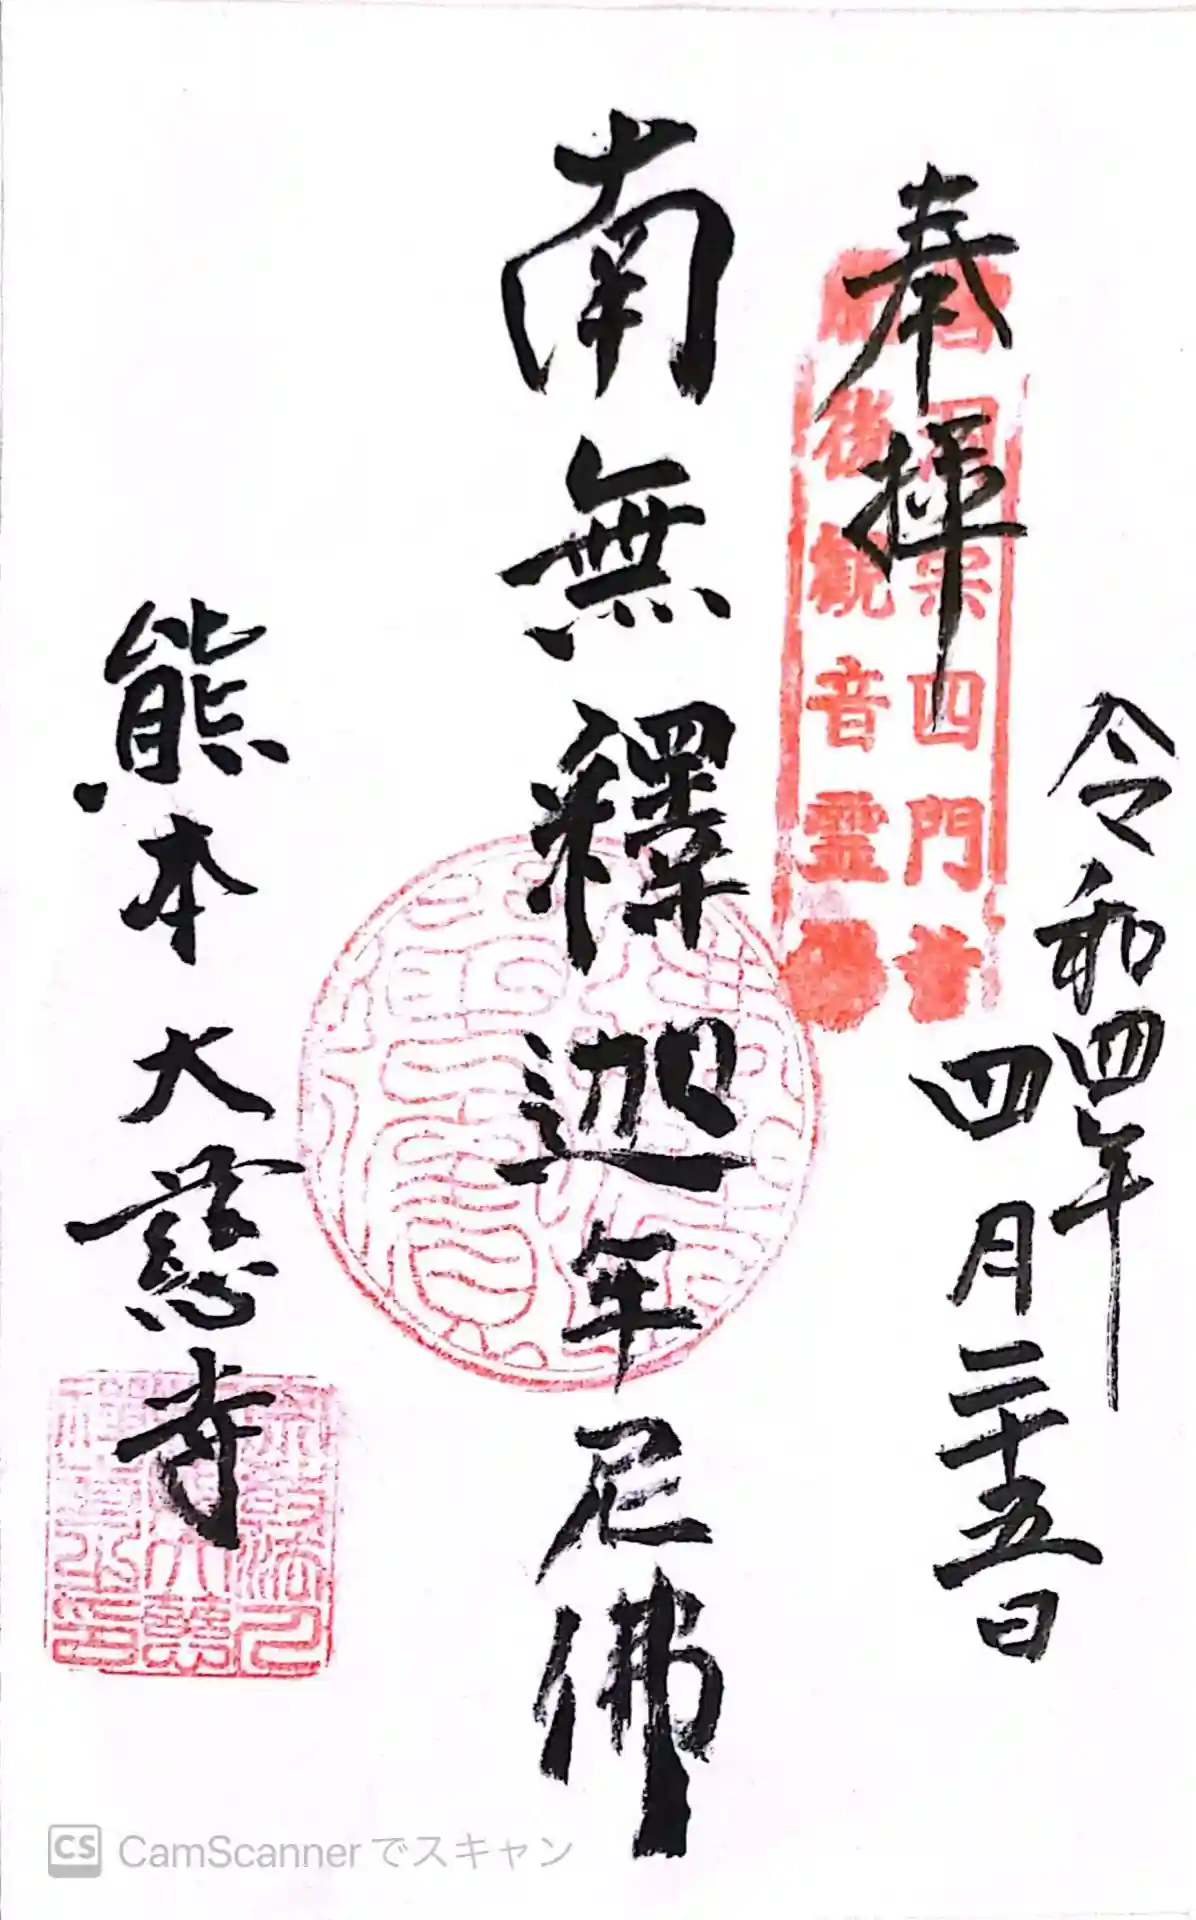 令和四年
四月二十五日
奉拝
曹洞宗四門首
肥後観音霊場
南無釋迦牟尼佛
熊本 大慈寺
CS CamScanner でスキャン